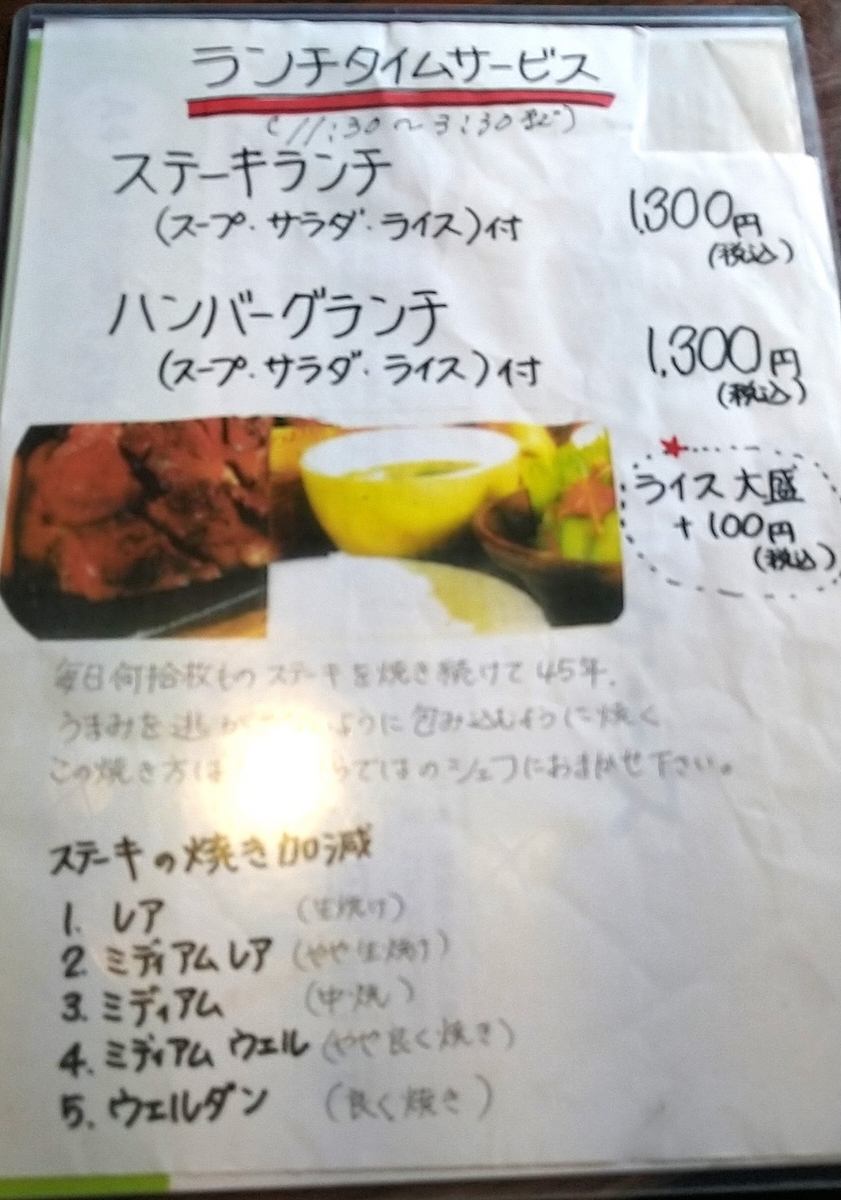 ランチタイムサービス
(11:30〜3:30まで)
ステーキランチ
(スープ・サラダ・ライス)付
1,300円
(税込)
ハンバーグランチ
(スープ・サラダ・ライス)付
1,300円
(税込)
ライス大盛
+100円
(税込)
毎日何拾枚ものステーキを焼き続けて45年.
うまみを逃が ように包み込むように焼く
この焼き方は らではのシェフにおまかせ下さい。
ステーキの焼き加減
1. レア (生焼け)
2. ミディアムレア (やや生焼け)
3. ミディアム (中焼)
4. ミディアムウェル (やや良く焼き)
5. ウェルダン (良く焼き)